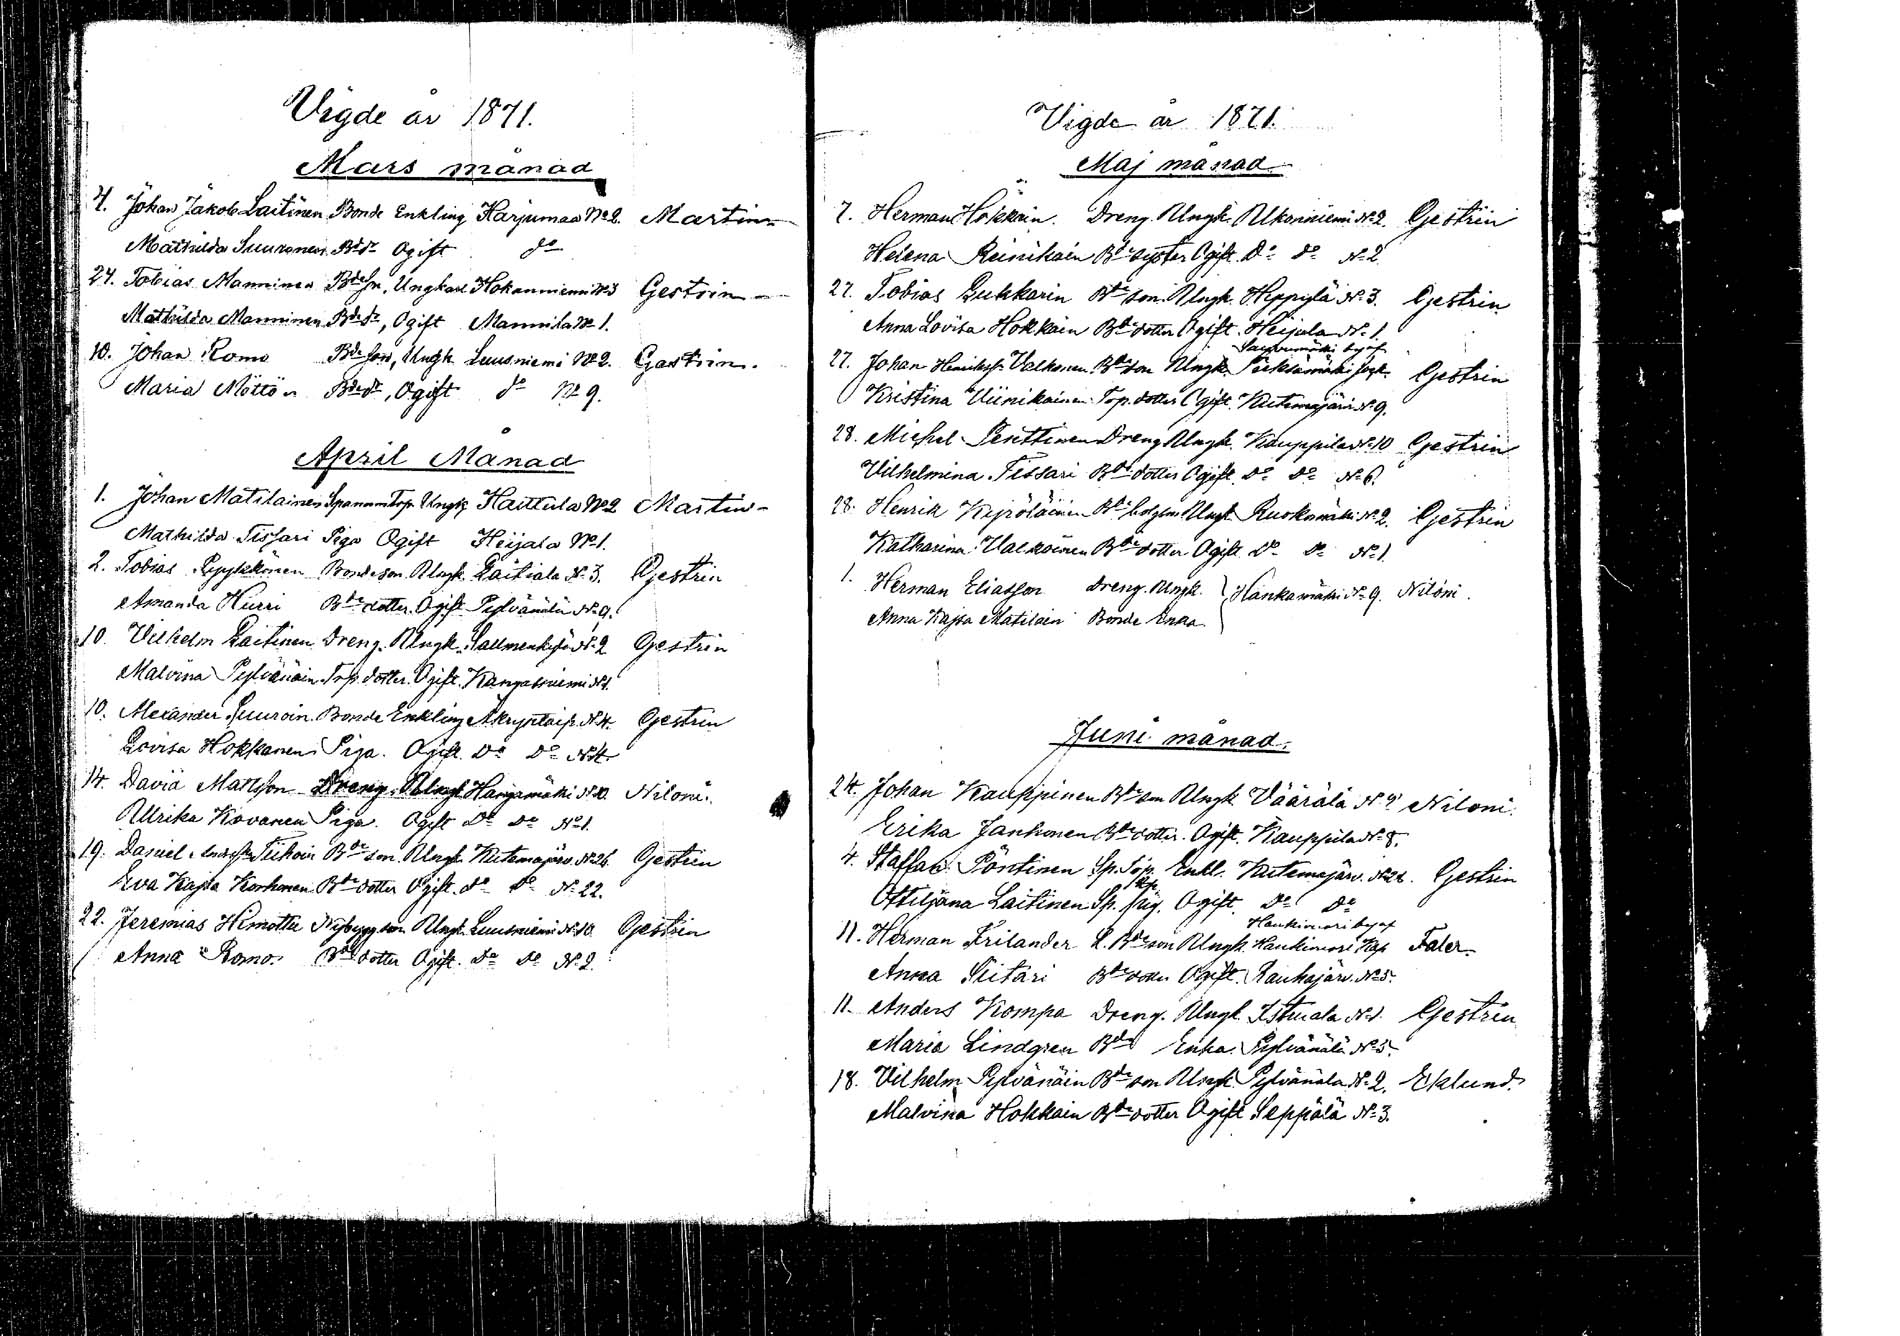 Vigde år 1871.
Mars månad
4. Johan Jakob Laitinen Bonde Enkling Harjumaa No 2. Martin
Mathilda Suuronen Bde dr Ogift do
24. Tobias Manninen Bde Sn, Ungkarl Hokanniemi No 3 Gestrin
Mathilda Manninen Bde dr, Ogift Mannila No 1.
10. Johan Romo Bde Son, Ungk Luusniemi No 2. Gastrin.
Maria Möttön Bde dr, Ogift do No 9.
April Månad
1. Johan Matilainen Spannm Torp. Ungk Haittula No 2 Martin
Mathilda Tissari Piga Ogift Heijala No 1.
2. Tobias Pyykkönen Bondeson Ungk. Laitiala No 3. Gestrin
Amanda Hurri Bde dotter Ogift Pylvänälä No 9.
10. Vilhelm Laitinen Dreng. Ungk. No 2 Gestrin
Malvina Pylvänäin Torp. dotter. Ogift. Kangasniemi No 1.
10. Alexander Suuroin Bonde Enkling No 4. Gestrin
Lovisa Hokkanen Piga. Ogift. Do Do No 4.
14. David Matsson Dreng Ungk Harjamäki No 10. Niloni.
Ulrika Kovanen Piga. Ogift Do Do No 1.
19. Daniel Tiihoin Bde son. Ungk. Kutemajärv. No 26. Gestrin
Eva Kajsa Korhonen Bde dotter Ogift. do Do No 22.
22. Jeremias Himottu Nybygg son Ungk. Luusniemi No 10. Gestrin
Anna Romo. Bde dotter Ogift. Do Do No 2.
Vigde år 1871.
Maj månad
7. Herman Hokkain. Dreng. Ungk. Ukonniemi No 2. Gestrin
Helena Reinikain Bde syster Ogift. Do do No 2
27. Tobias Pukkarin Bde son. Ungk. No 3. Gestrin
Anna Lovisa Hokkain Bde dotter Ogift. Heijala No 1.
27. Johan Henriksf. Valkonen Bde son Ungk. Pieksämäki Gestrin
Kristina Viinikainen Torp. dotter Ogift. Kutemajärvi No 9.
28. Michel Penttinen Dreng Ungk. Kauppila No 10 Gestrin
Vilhelmina Tissari Bde dotter Ogift. Do Do No 6.
28. Henrik Bde Ungk. Ruokomäki No 2. Gestrin
Katharina Valkoinen Bde dotter Ogift. Do Do No 1
1. Herman Eliasson Dreng. Ungk. Hankamäki No 9. Niloni.
Anna Kajsa Matilain Bonde Enka
Juni månad.
24. Johan Kauppinen Bde son Ungk. Väärälä No 9 Niloni.
Erika Janhonen Bde dotter. Ogift. Kauppila No 8.
4. Staffan Pöntinen Sp. Torp. Enkl. Kutemajärv. Gestrin
Ottiljana Laitinen Sp. pig. Ogift. Do Do
11. Herman Frilander L. Bde son Ungk. Haukivori Kap. Faler.
Anna Siitari Bde dotter Ogift. Rauhajärv. No 5.
11. Anders Kompa Dreng. Ungk. Istruala No 1. Gestrin
Maria Lindgren Bde Enka. Pylvänälä No 5.
18. Vilhelm Pylvänäin Bde son Ungk. Pylvänälä No 2. Eklund.
Malvina Hokkain Bde dotter Ogift Seppälä No 3.